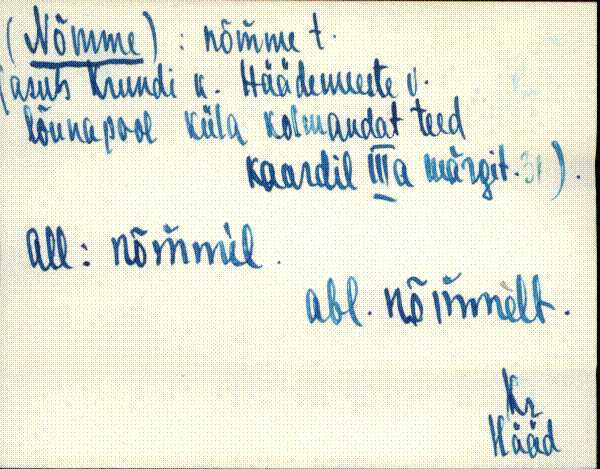 (Nõmme) : nõm̆me t.
(asub Krundi k. Häädemeeste v.
lõunapool küla kolmandat teed
kaardil IIIa märgit. 31).
all : nõm̆mil.
abl. nõm̆melt.
Kr
Hääd